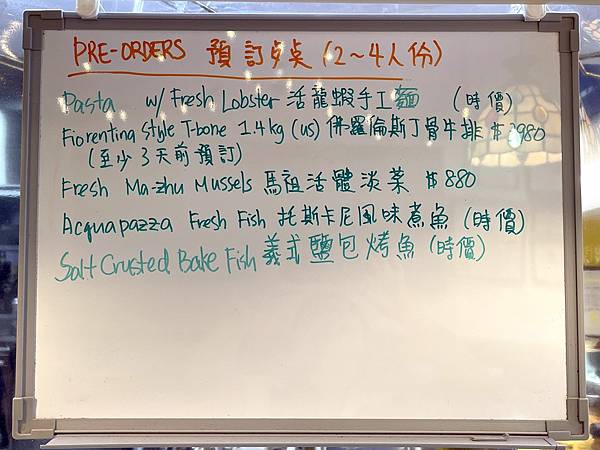 PRE-ORDERS 預訂点菜 (2~4人份)
Pasta w/ Fresh Lobster 活龍蝦手工麵 (時價)
Fiorentina Style T-bone 1.4kg (us) 佛羅倫斯丁骨牛排 $2980
(至少3天前預訂)
Fresh Ma-zhu Mussels 馬祖活體淡菜 $880
Acquapazza Fresh Fish 托斯卡尼風味煮魚 (時價)
Salt Crusted Bake Fish 義式鹽包烤魚 (時價)